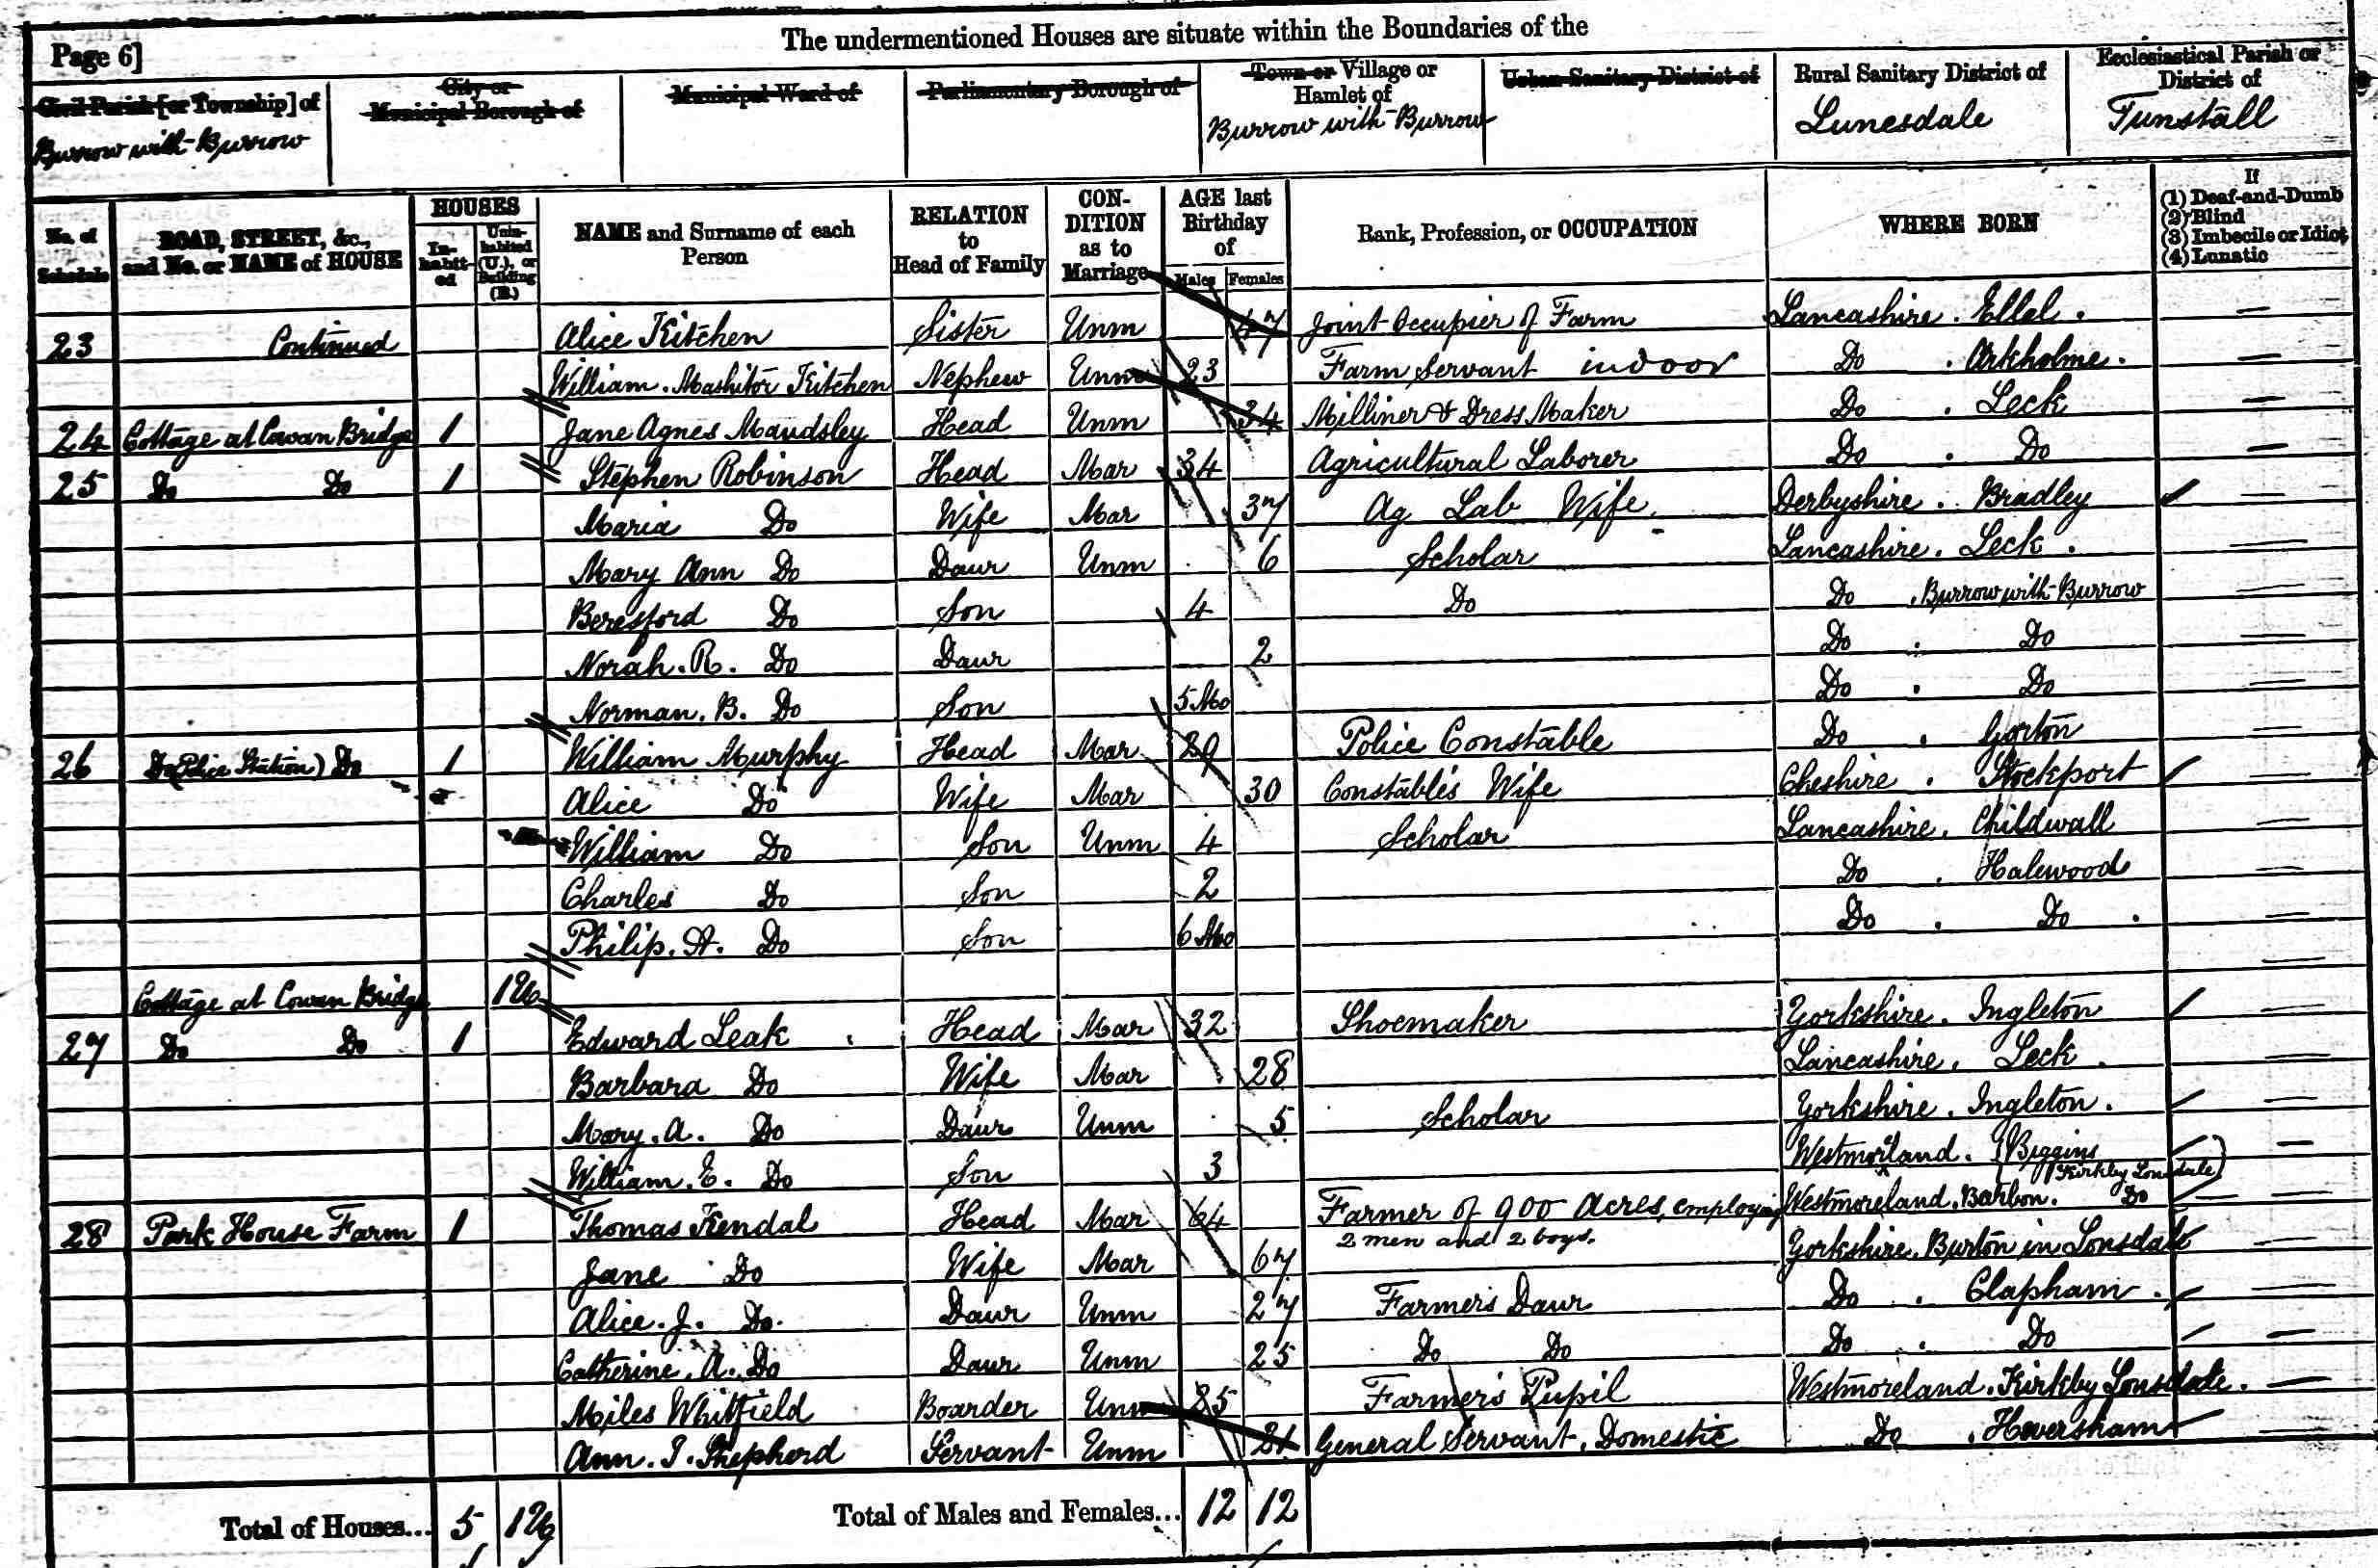 The undermentioned Houses are situate within the Boundaries of the
Page 6]
Civil Parish [or Township] of
Burrow with Burrow
City or
Municipal Borough of
Municipal Ward of
Parliamentary Borough of
Town or Village or
Hamlet of
Burrow with Burrow
Urban Sanitary District of
Rural Sanitary District of
Lunesdale
Ecclesiastical Parish or
District of
Tunstall
No. of
Schedule
ROAD, STREET, &c.,
and No. or NAME of HOUSE
HOUSES
In-
habit-
ed
Unin-
habited
(U.), or
Building
(B.)
NAME and Surname of each
Person
RELATION
to
Head of Family
CON-
DITION
as to
Marriage
AGE last
Birthday
of
Males
Females
Rank, Profession, or OCCUPATION
WHERE BORN
If
(1) Deaf-and-Dumb
(2) Blind
(3) Imbecile or Idiot
(4) Lunatic
23 Continued Alice Kitchen Sister Unm 47 Joint Occupier of Farm Lancashire. Ellel. —
William. Mashiter Kitchen Nephew Unm 23 Farm Servant indoor Do . Arkholme. —
24 Cottage at Cowan Bridge 1 Jane Agnes Maudsley Head Unm 34 Milliner & Dress Maker Do . Leck —
25 Do Do 1 Stephen Robinson Head Mar 34 Agricultural Laborer Do . Do —
Maria Do Wife Mar 37 Ag Lab Wife Derbyshire. Bradley —
Mary Ann Do Daur Unm 6 Scholar Lancashire. Leck. —
Beresford Do Son 4 Do Do . Burrow with Burrow —
Norah. R. Do Daur 2 Do . Do —
Norman. B. Do Son 5 Mo Do . Do —
26 Do (Police Station) Do 1 William Murphy Head Mar 29 Police Constable Do . Gorton —
Alice Do Wife Mar 30 Constable's Wife Cheshire . Stockport —
William Do Son Unm 4 Scholar Lancashire. Childwall —
Charles Do Son 2 Do . Halewood —
Philip. A. Do Son 6 Mo Do . Do . —
Cottage at Cowan Bridge 1U —
27 Do Do 1 Edward Leak Head Mar 32 Shoemaker Yorkshire. Ingleton
Barbara Do Wife Mar 28 Lancashire. Leck. —
Mary. A. Do Daur Unm 5 Scholar Yorkshire. Ingleton. —
William. E. Do Son 3 Westmorland. (Biggins —
Kirkby Lonsdale)
28 Park House Farm 1 Thomas Kendal Head Mar 64 Farmer of 900 Acres, employing Westmoreland. Barbon. Do —
2 men and 2 boys.
Jane Do Wife Mar 67 Yorkshire. Burton in Lonsdale —
Alice. J. Do. Daur Unm 27 Farmer's Daur Do . Clapham. —
Catherine. A. Do Daur Unm 25 Do Do Do . Do —
Miles Whitfield Boarder Unm 25 Farmer's Pupil Westmoreland. Kirkby Lonsdale. —
Ann. T. Shepherd Servant Unm 21 General Servant, Domestic Do . Heversham —
Total of Houses... 5 1U
Total of Males and Females... 12 12